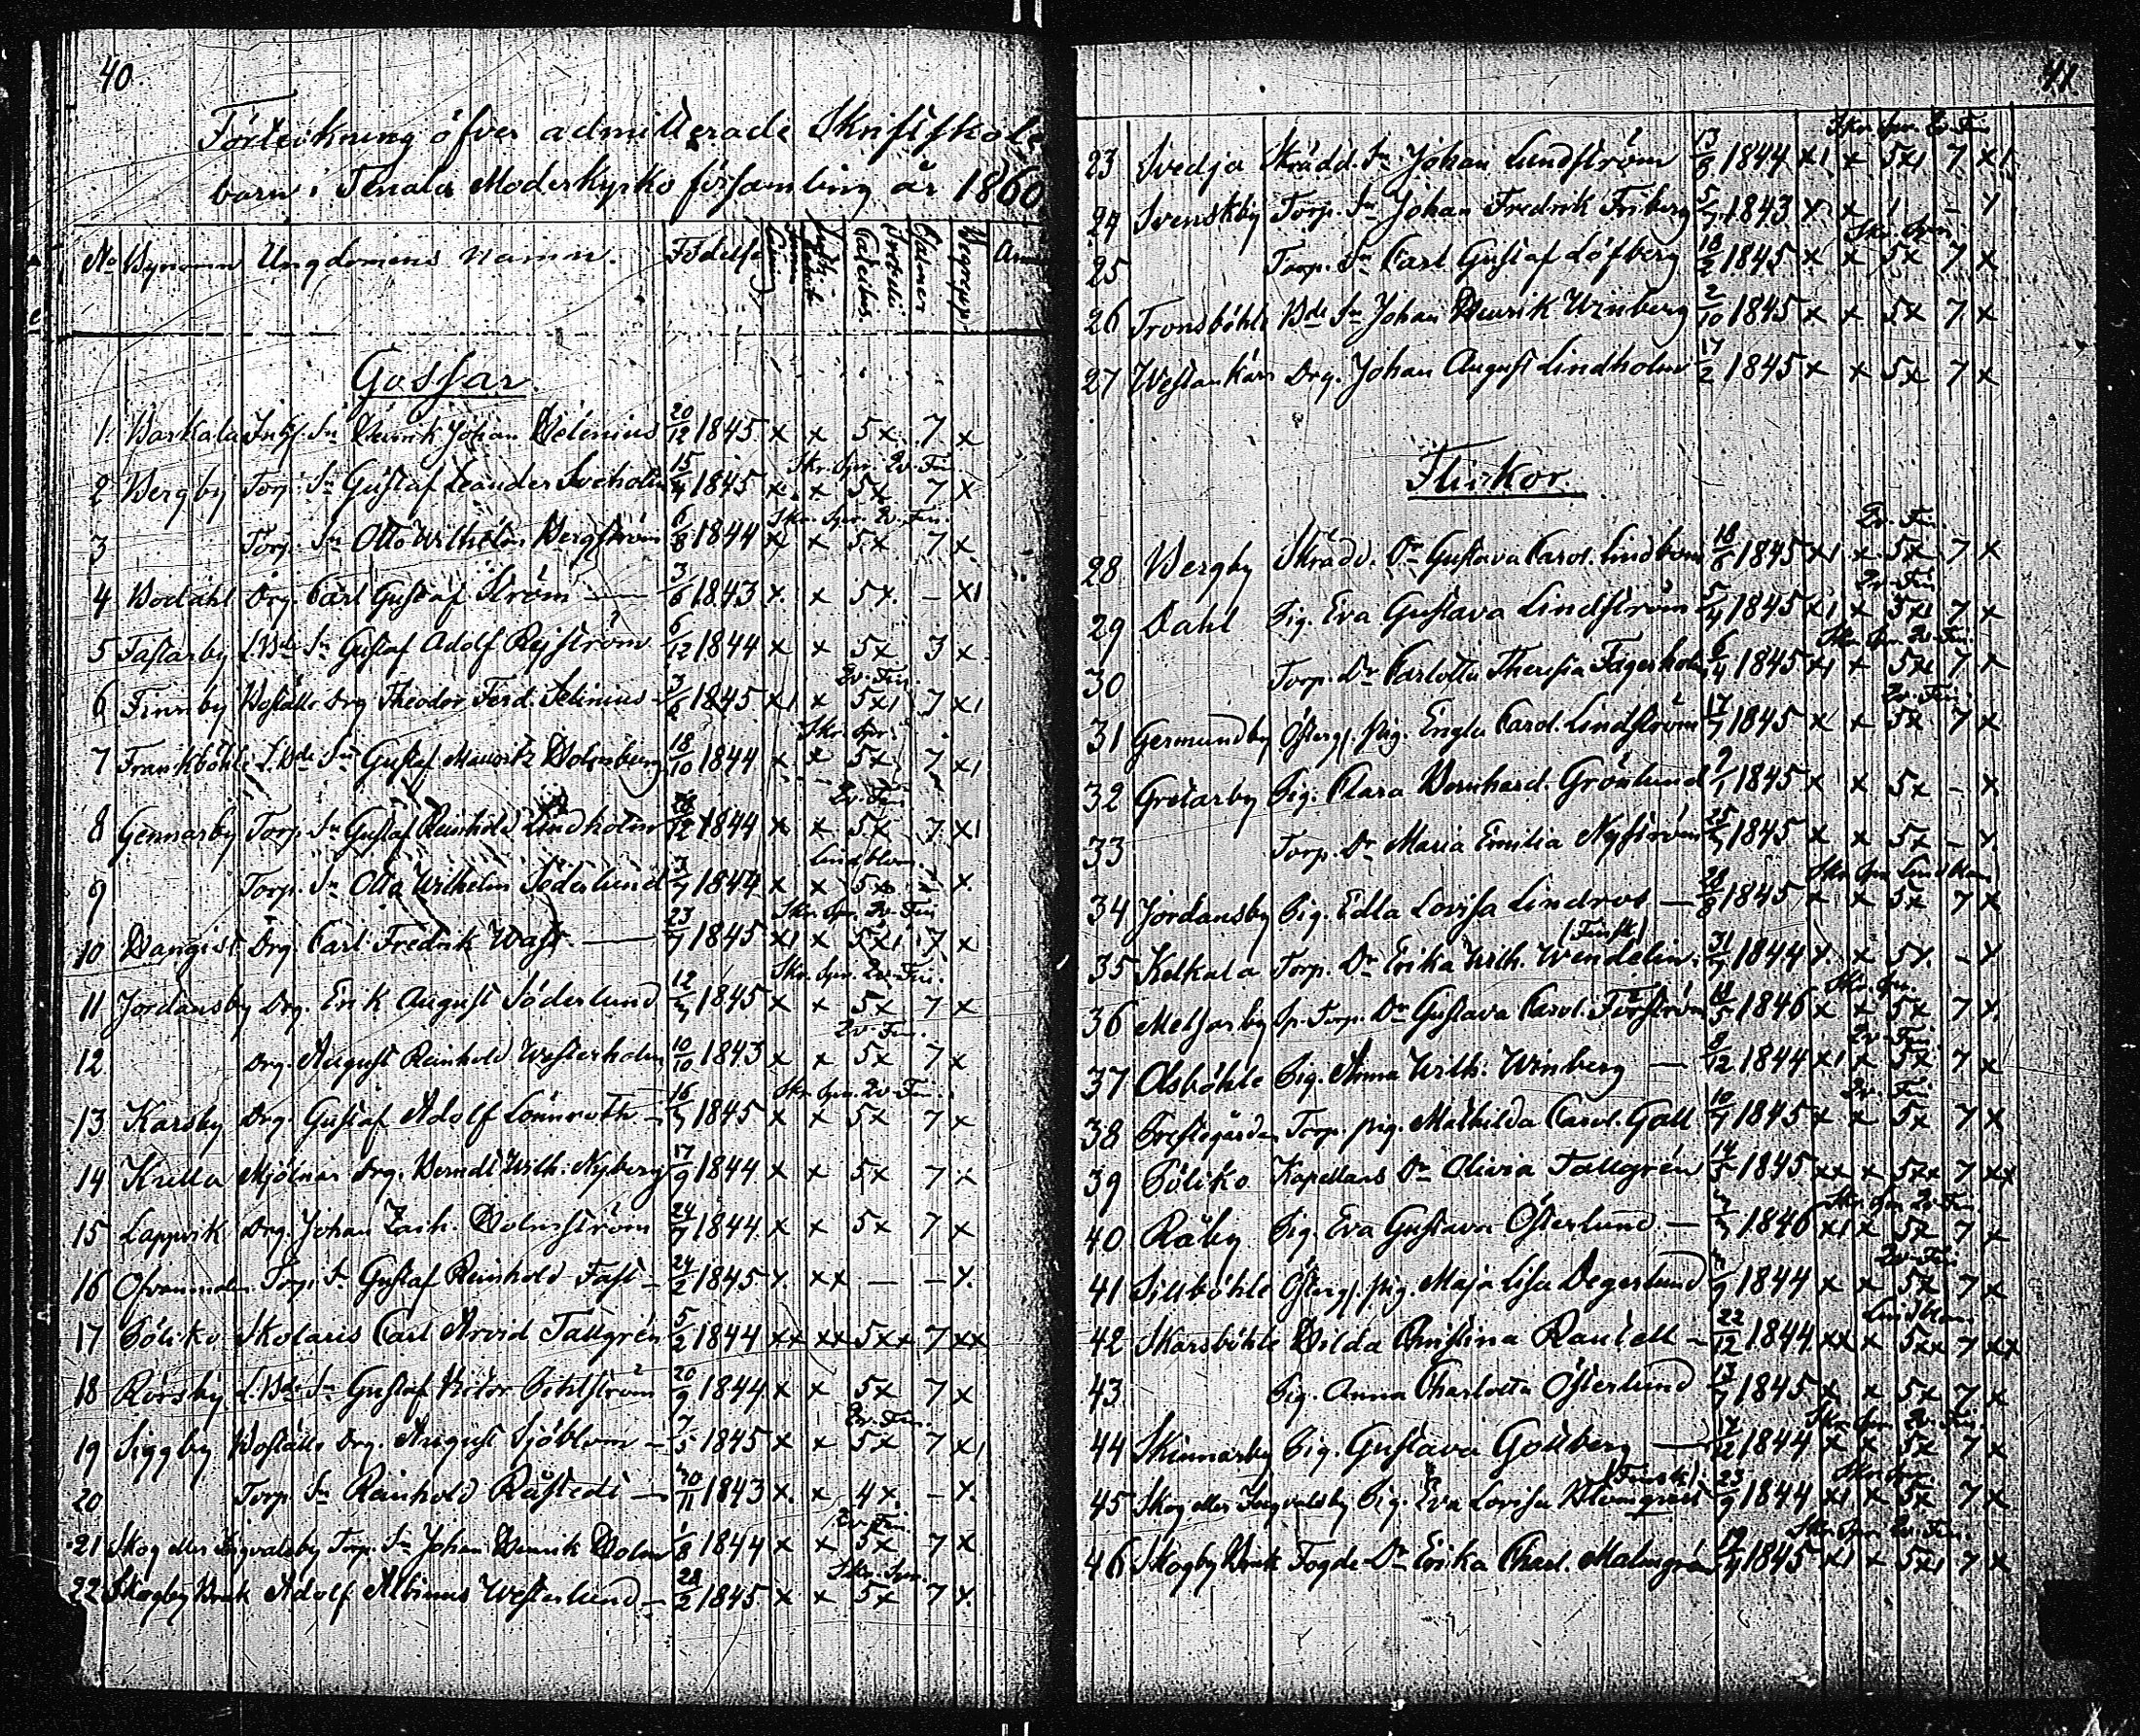 40.
Förteckning öfver admitterade Skriftskole
barn i Tenala Moderkyrko församling år 1860
No Bynamn Ungdomens namn. Födelse
Gossar.
1. Barkala Henrik Johan Helenius 20/12 1845 x x 5x 7 x
Skr. Spr. Qv. Fin.
2 Bergby Torp. Sn Gustaf Leander Sveholm 15/4 1845 x x 5x 7 x
Skr. Spr. Qv. Fin.
3 Torp. Sn Otto Wilhelm Bergström 6/8 1844 x x 5x 7 x
4 Bodahl Drg. Carl Gustaf Ström — 3/6 1843 x. x 5x. – x1
5 Fastarby L.Bde Sn Gustaf Adolf Rejström 6/12 1844 x x 5x 3 x
Qv. Fin.
6 Finnby Boställs Drg Theodor Ferd. Selinius 1845 x1 x 5x1 7 x1
Skr. Spr.
7 Frankböhle L.Bde Sn Gustaf Mauritz Holmberg 18/10 1844 x x 5x 7 x1
Qv. Fin.
8 Gennarby Torp. Sn Gustaf Reinhold Lindholm 1844 x x 5x 7 x1
Lindblom.
9 Torp. Sn Otto Wilhelm Söderlund 3/7 1844 x x 5x 7 x.
Skr. Spr. Qv. Fin
10 Hangist Drg. Carl Fredrik Wass — 23/7 1845 x1 x 5x1 7 x
Skr. Spr. Qv. Fin.
11 Jordansby Drg. Erik August Söderlund 1845 x x 5x 7 x
Qv. Fin.
12 Drg. August Reinhold Westerholm 10/10 1843 x x 5x 7 x
Skr. Spr. Qv. Fin.
13 Karsby Drg. Gustaf Adolf Lönnroth – 1845 x x 5x 7 x
14 Krella Mjölnar drg. Berndt Wilh. Nyberg 17/9 1844 x x 5x 7 x
15 Lappvik Drg. Johan Zach. Holmström 24/7 1844 x x 5x 7 x
16 Torp. S. Gustaf Reinhold Fast – 24/2 1845 x. xx — – x.
17 Pöliko Skolaris Carl Arvid Tallgrén 5/2 1844 xx xx 5xx 7 xx
18 Rörsby L.Bde Sn Gustaf Victor Pehlström 20/9 1844 x x 5x 7 x
Qv. Fin.
19 Siggby Boställs Drg. August Sjöblom – 7/5 1845 x x 5x 7 x1
20 Torp. Sn Reinhold Råstedt — 30/11 1843 x. x 4x. – x.
Qv. Fin.
21 Skog eller Ingvalsby Torp. Sn Johan Henrik Holm 1/8 1844 x x 5x 7 x
Skr. Spr.
22 Skogby Bruk Adolf Albinus Westerlund – 28/2 1845 x x 5x 7 x.
41
Skr. Spr. Qv. Fin
23 Svedja Skrädd. Sn Johan Lundström 13/8 1844 x1 x 5x1 7 x1
24 Svenskby Torp. Sn Johan Fredrik Friberg 1843 x x 1 – x
Skr. Spr.
25 Torp. Sn Carl Gustaf Löfberg 18/2 1845 x x 5x 7 x
26 Tronsböhle Bde Sn Johan Henrik Winberg 2/10 1845 x x 5x 7 x
27 Westankärr Drg. Johan August Lindholm 17/2 1845 x x 5x 7 x
Flickor.
Qv. Fin.
28 Bergby Skrädd. Dr Gustava Carol. Lindbom 1845 x1 x 5x 7 x
Qv. Fin
29 Dahl Pig. Eva Gustava Lindström 5/4 1845 x1 x 5x1 7 x
Skr. Spr. Qv. Fin.
30 Torp. Dr Carlotta Theresia Fagerholm 6/4 1845 x1 x 5x1 7 x
Qv. Fin.
31 Germundby Österg. pig. Engla Carol. Lindström 17/7 1845 x x 5x 7 x
32 Gretarby Pig. Clara Bernhard. Grönlund 9/1 1845 x x 5x – x
33 Torp. Dr Maria Emilia Nyström 1845 x x 5x – x.
Skr. Spr. Lindblom
34 Jordansby Pig. Edla Lovisa Lindroos — 28/8 1845 x x 5x 7 x
(Finsk)
35 Kelkala Torp. Dr Erika Wilh. Wendelin. 31/7 1844 x. x 5x. – x
Skr. Spr.
36 Metsarby Sp. Torp. Dr Gustava Carol. Förström 18/5 1846 x x 5x 7 x.
Qv. Fin.
37 Olsböhle Pig. Anna Wilh. Winberg — 8/12 1844 x1 x 5x 7 x
Qv. Fin
38 Prestgården Torp. pig. Mathilda Carol. Gall 10/7 1845 x x 5x 7 x
39 Pöliko Kapellans Dr Olivia Tallgrén 14/5 1845 xx x 5xx 7 xx
Skr. Spr. Qv. Fin.
40 Råby Pig. Eva Gustava Österlund — 1846 x1 x 5x 7 x
Qv. Fin
41 Sillböhle Österg. pig. Maja Lisa Degerlund 1844 x x 5x 7 x
Lindblom
42 Skarsböhle Hilda Christina Rautell – 22/12 1844 xx x 5xx 7 xx
43 Pig. Anna Charlotta Österlund 13/7 1845 x x 5x 7 x
Skr. Spr. Qv. Fin.
44 Skinnarby Pig. Gustava Gottberg — 17/12 1844 x x 5x 7 x
(Finsk) Skr. Spr.
45 Skog eller Ingvalsby Pig. Eva Lovisa Blomqvist 23/9 1844 x1 x 5x 7 x
Skr. Spr. Qv. Fin.
46 Skogby Bruk Fogde Dr Erika Charl. Malmgrén 19/4 1845 x1 x 5x1 7 x